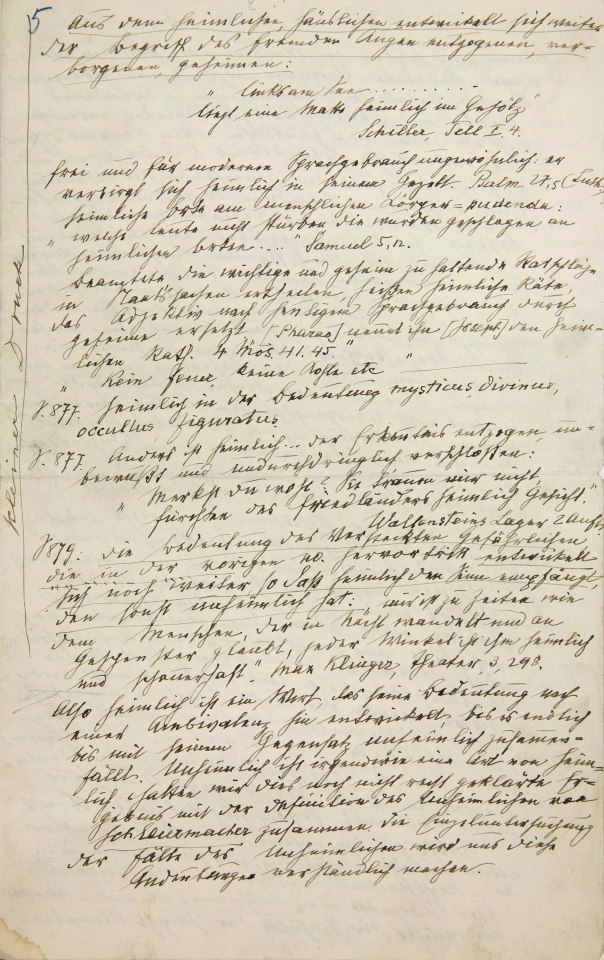 5
Aus dem heimlichen, häuslichen entwickelt sich weiter
der Begriff des fremden Augen entzogenen, ver-
borgenen, geheimen:
" links am See . . . . . . . . . .
liegt eine Matte heimlich im Gehölz"
Schiller, Tell I, 4.
frei und für modernen Sprachgebrauch ungewöhnlich: er
verbirgt sich heimlich in seinem Gezelt. Psalm 27,5 (Luth.)
heimliche Orte am menschlichen Körper = pudenda:
" welche Leute nicht stürben, die wurden geschlagen an
heimlichen Orten . . . " Samuel 5, 12.
Beamtete, die wichtige und geheim zu haltende Ratschläge
in Staatssachen erteilen, heißen heimliche Räte,
das Adjektiv nach heutigem Sprachgebrauch durch
geheim ersetzt [Pharao] nennt ihn [Joseph] den heim-
lichen Rath. 4 Mos. 41.45."
" Kein Feuer, keine Kohle etc "
S. 877. heimlich in der Bedeutung mysticus, divinus,
occultus figuratus
S. 877. Anders ist heimlich . . . der Erkenntnis entzogen, un-
bewußt und undurchdringlich verschlossen:
" Merkst du wohl? Sie trauen mir nicht,
fürchten des Friedländers heimlich Gesicht."
Wallensteins Lager 2 Auft.
S 879. die Bedeutung des Versteckten Gefährlichen
die in der vorigen no. hervortritt entwickelt
sich noch weiter so daß heimlich den Sinn empfängt,
den sonst unheimlich hat: mir ist zu Zeiten wie
dem Menschen, der in Nacht wandelt und an
Gespenster glaubt, jeder Winkel ist ihm heimlich
und schauerhaft." Max Klinger Theater, 3, 298.
Also heimlich ist ein Wort das seine Bedeutung nach
einer Ambivalenz hin entwickelt, bis es endlich
bis mit seinem Gegensatz unheimlich zusamen-
fällt. Unheimlich ist irgendwie eine Art von heim-
lich. halten wir dies noch nicht recht geklärte Er-
gebnis mit der Definition des Unheimlichen von
Schleiermacher zusammen. die Einzeluntersuchung
der Fälle des Unheimlichen wird uns diese
Andeutungen verständlich machen.
kleiner Druck